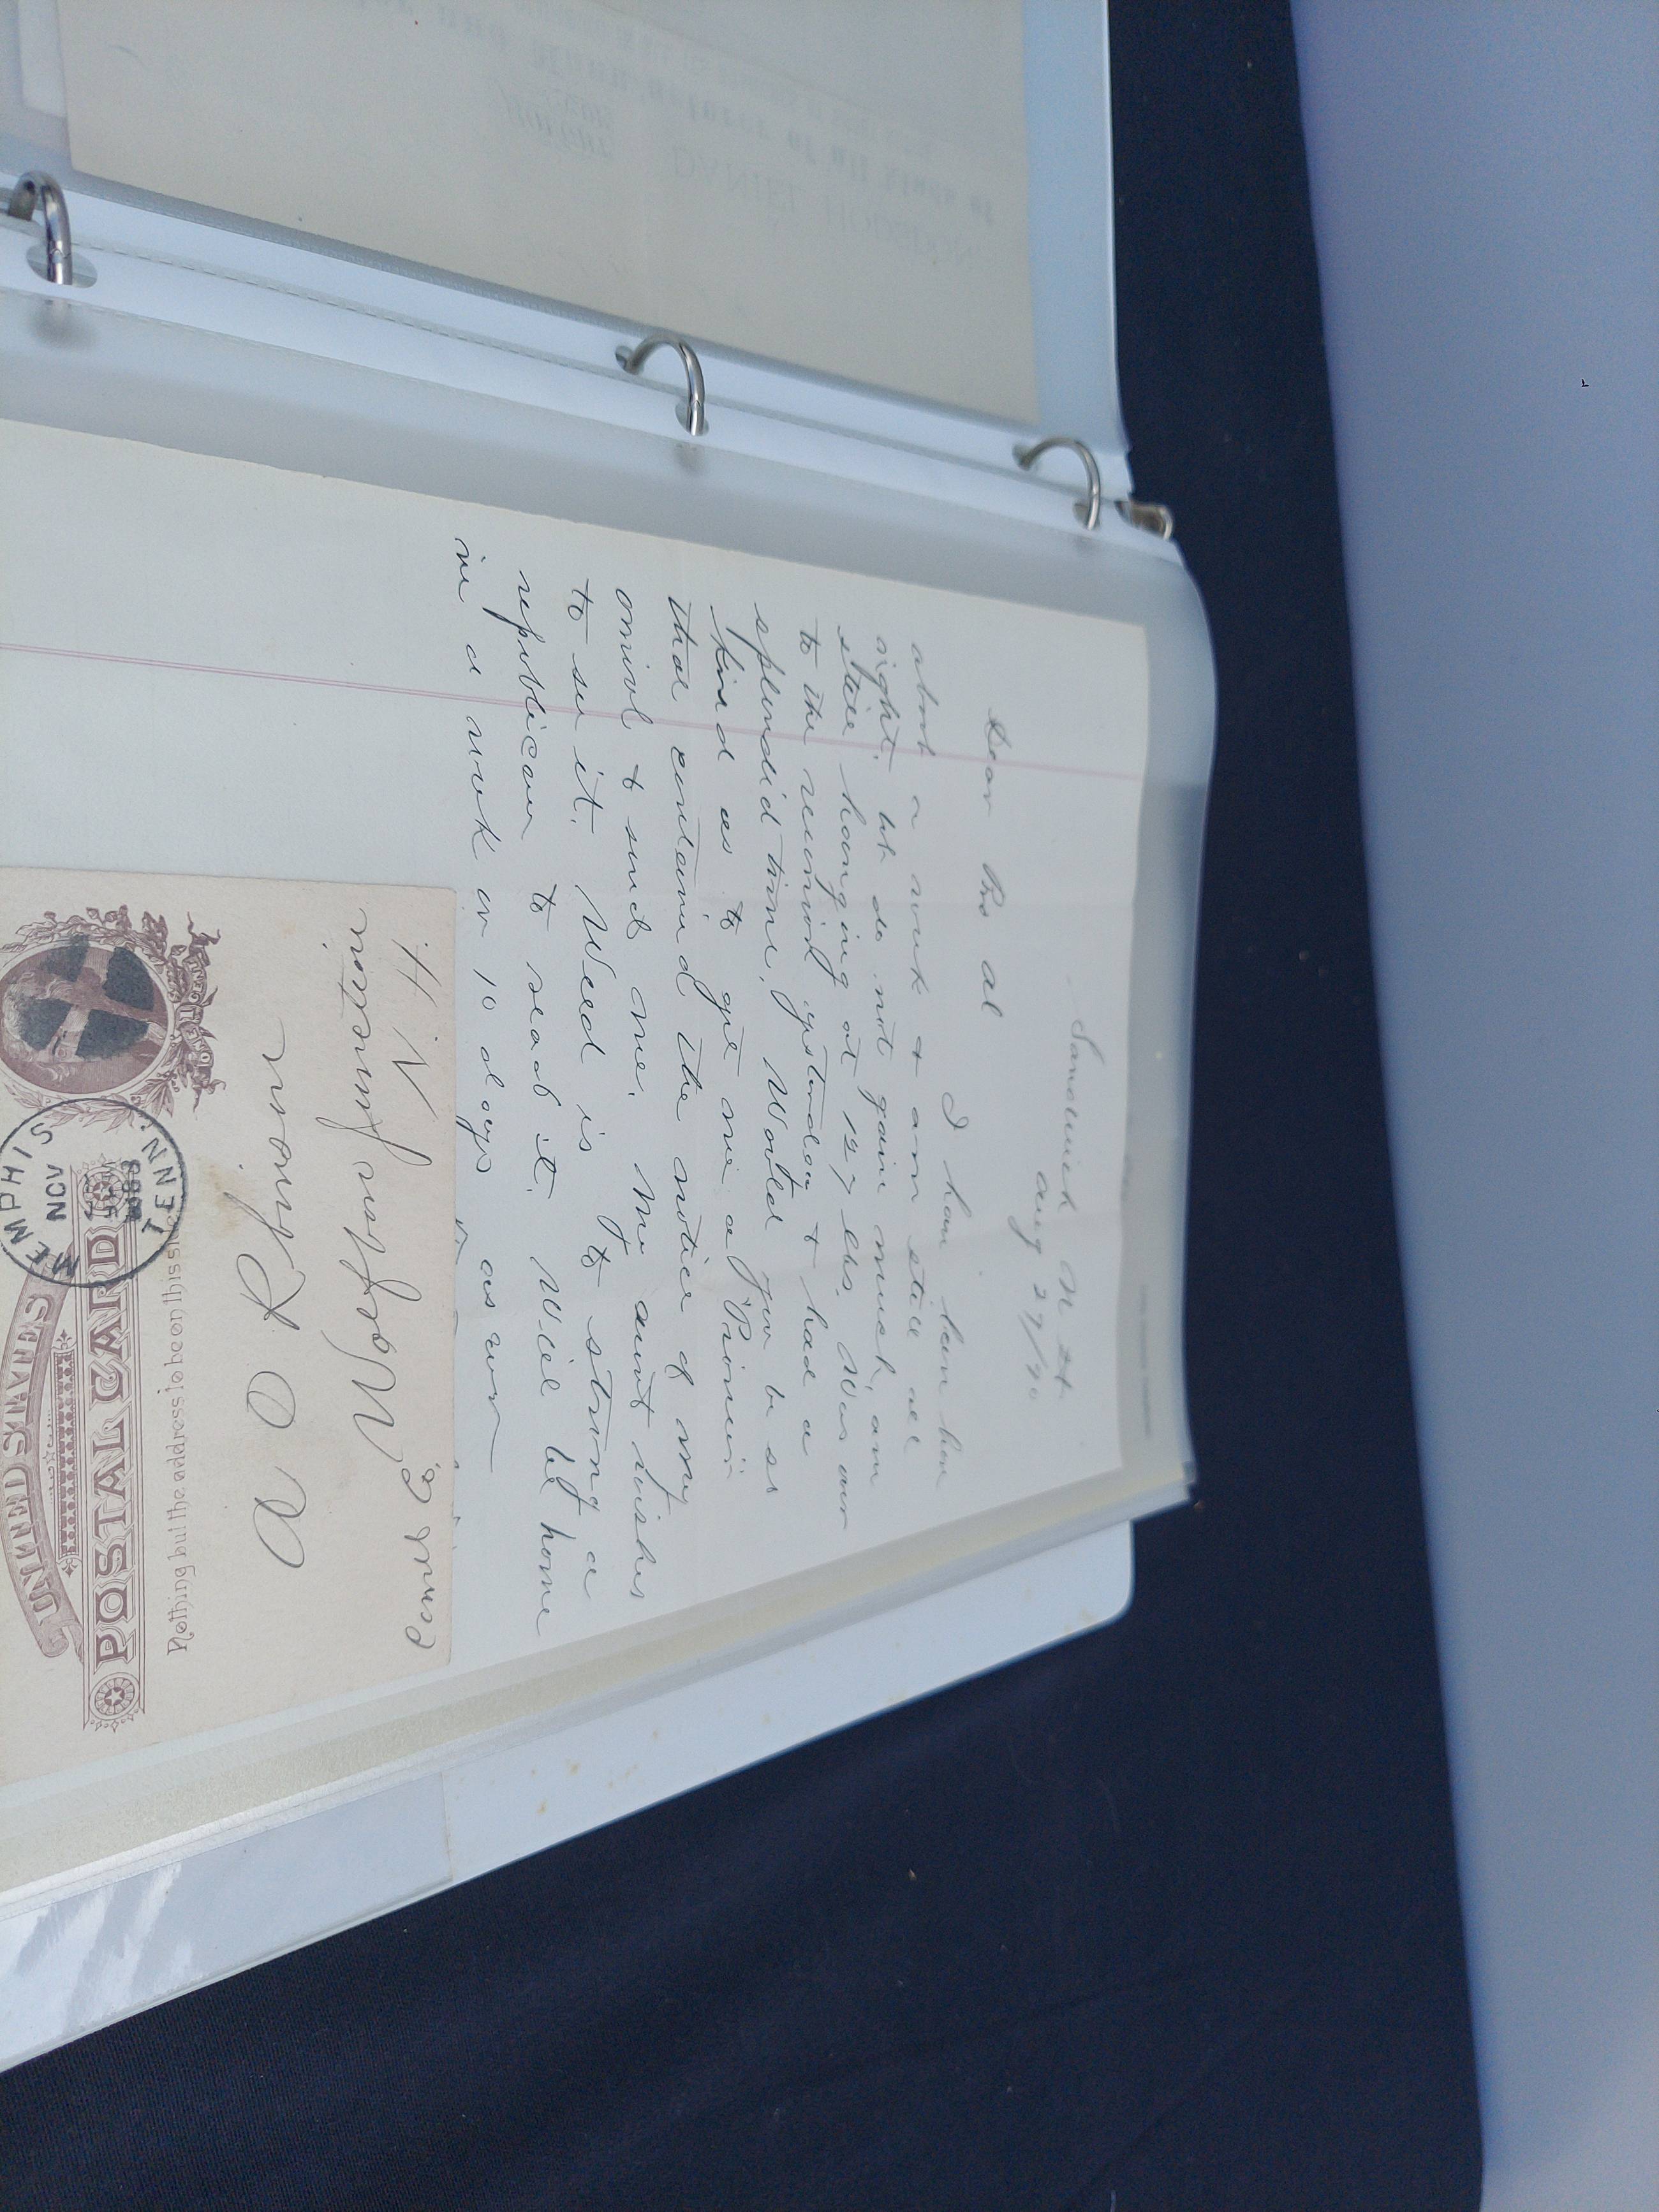 Sandwich N H
Aug 27/90
Dear Bro Al
I have been here
about a week & am still all
right. but do not gain much, am
still hanging at 157 lbs. Was over
to the reunion yesterday & had a
splendid time. Would you be so
kind as to get me a "Pioneer"
that contained the notice of my
arrival & send me. My aunt wishes
to see it. Weed is to strong a
republican to read it. Will be home
in a week or 10 days as ever
UNITED STATES
POSTAL CARD
Nothing but the address to be on this side
MEMPHIS
NOV
TENN.
A O Robinson
Wolfboro Junction
Carroll Co.
N. H.
DANIEL HODSDON
of all kinds of